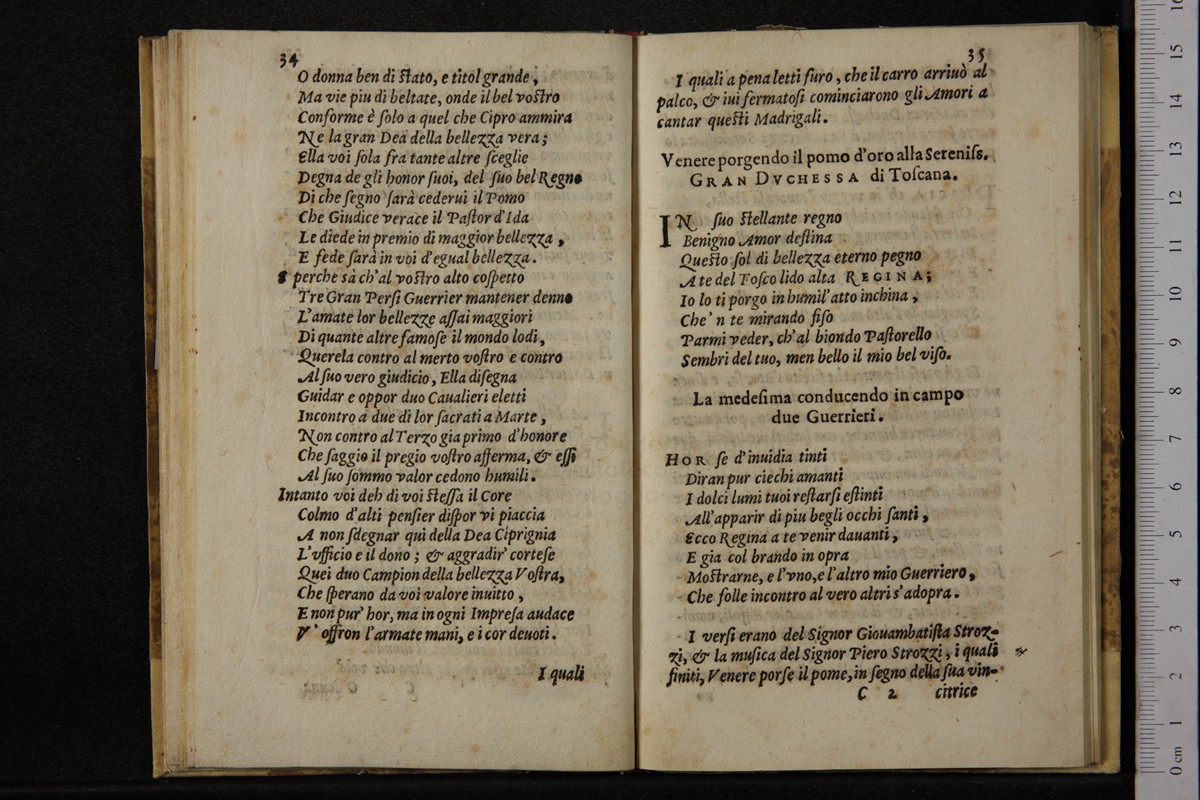 34
O donna ben di ſtato, e titol grande,
Ma vie piu di beltate, onde il bel voſtro
Conforme è ſolo a quel che Cipro ammira
Ne la gran Dea della bellezza vera;
Ella voi ſola fra tante altre ſceglie
Degna de gli honor ſuoi, del ſuo bel Regno
Di che ſegno ſarà cederui il Pomo
Che Giudice verace il Paſtor d'Ida
Le diede in premio di maggior bellezza,
E fede ſarà in voi d'egual bellezza.
E perche sà ch'al voſtro alto coſpetto
Tre Gran Perſi Guerrier mantener denno
L'amate lor bellezze aſſai maggiori
Di quante altre famoſe il mondo lodi,
Querela contro al merto voſtro e contro
Al ſuo vero giudicio, Ella diſegna
Guidar e oppor duo Caualieri eletti
Incontro a due di lor ſacrati a Marte,
Non contro al Terzo gia primo d'honore
Che ſaggio il pregio voſtro afferma, & eſſi
Al ſuo ſommo valor cedono humili.
Intanto voi deh di voi ſteſſa il Core
Colmo d'alti penſier diſpor vi piaccia
A non ſdegnar qui della Dea Ciprignia
L'vfficio e il dono; & aggradir' corteſe
Quei duo Campion della bellezza Voſtra,
Che ſperano da voi valore inuitto,
E non pur' hor, ma in ogni Impreſa audace
V' offron l'armate mani, e i cor deuoti.
I quali
35
I quali a pena letti furo, che il carro arriuò al
palco, & iui fermatoſi cominciarono gli Amori a
cantar queſti Madrigali.
Venere porgendo il pomo d'oro alla Sereniſs.
GRAN DVCHESSA di Toſcana.
IN ſuo ſtellante regno
Benigno Amor deſtina
Queſto ſol di bellezza eterno pegno
A te del Toſco lido alta REGINA;
Io lo ti porgo in humil' atto inchina,
Che' n te mirando fiſo
Parmi veder, ch'al biondo Paſtorello
Sembri del tuo, men bello il mio bel viſo.
La medeſima conducendo in campo
due Guerrieri.
HOR ſe d'inuidia tinti
Diran pur ciechi amanti
I dolci lumi tuoi reſtarſi eſtinti
All'apparir di piu begli occhi ſanti,
Ecco Regina a te venir dauanti,
E gia col brando in opra
Moſtrarne, e l'vno, e l'altro mio Guerriero,
Che folle incontro al vero altri s'adopra.
I verſi erano del Signor Giouambatiſta Stroz-
zi, & la muſica del Signor Piero Strozzi, i quali
finiti, Venere porſe il pome, in ſegno della ſua vin-
C 2 citrice
0 cm 1 2 3 4 5 6 7 8 9 10 11 12 13 14 15 16